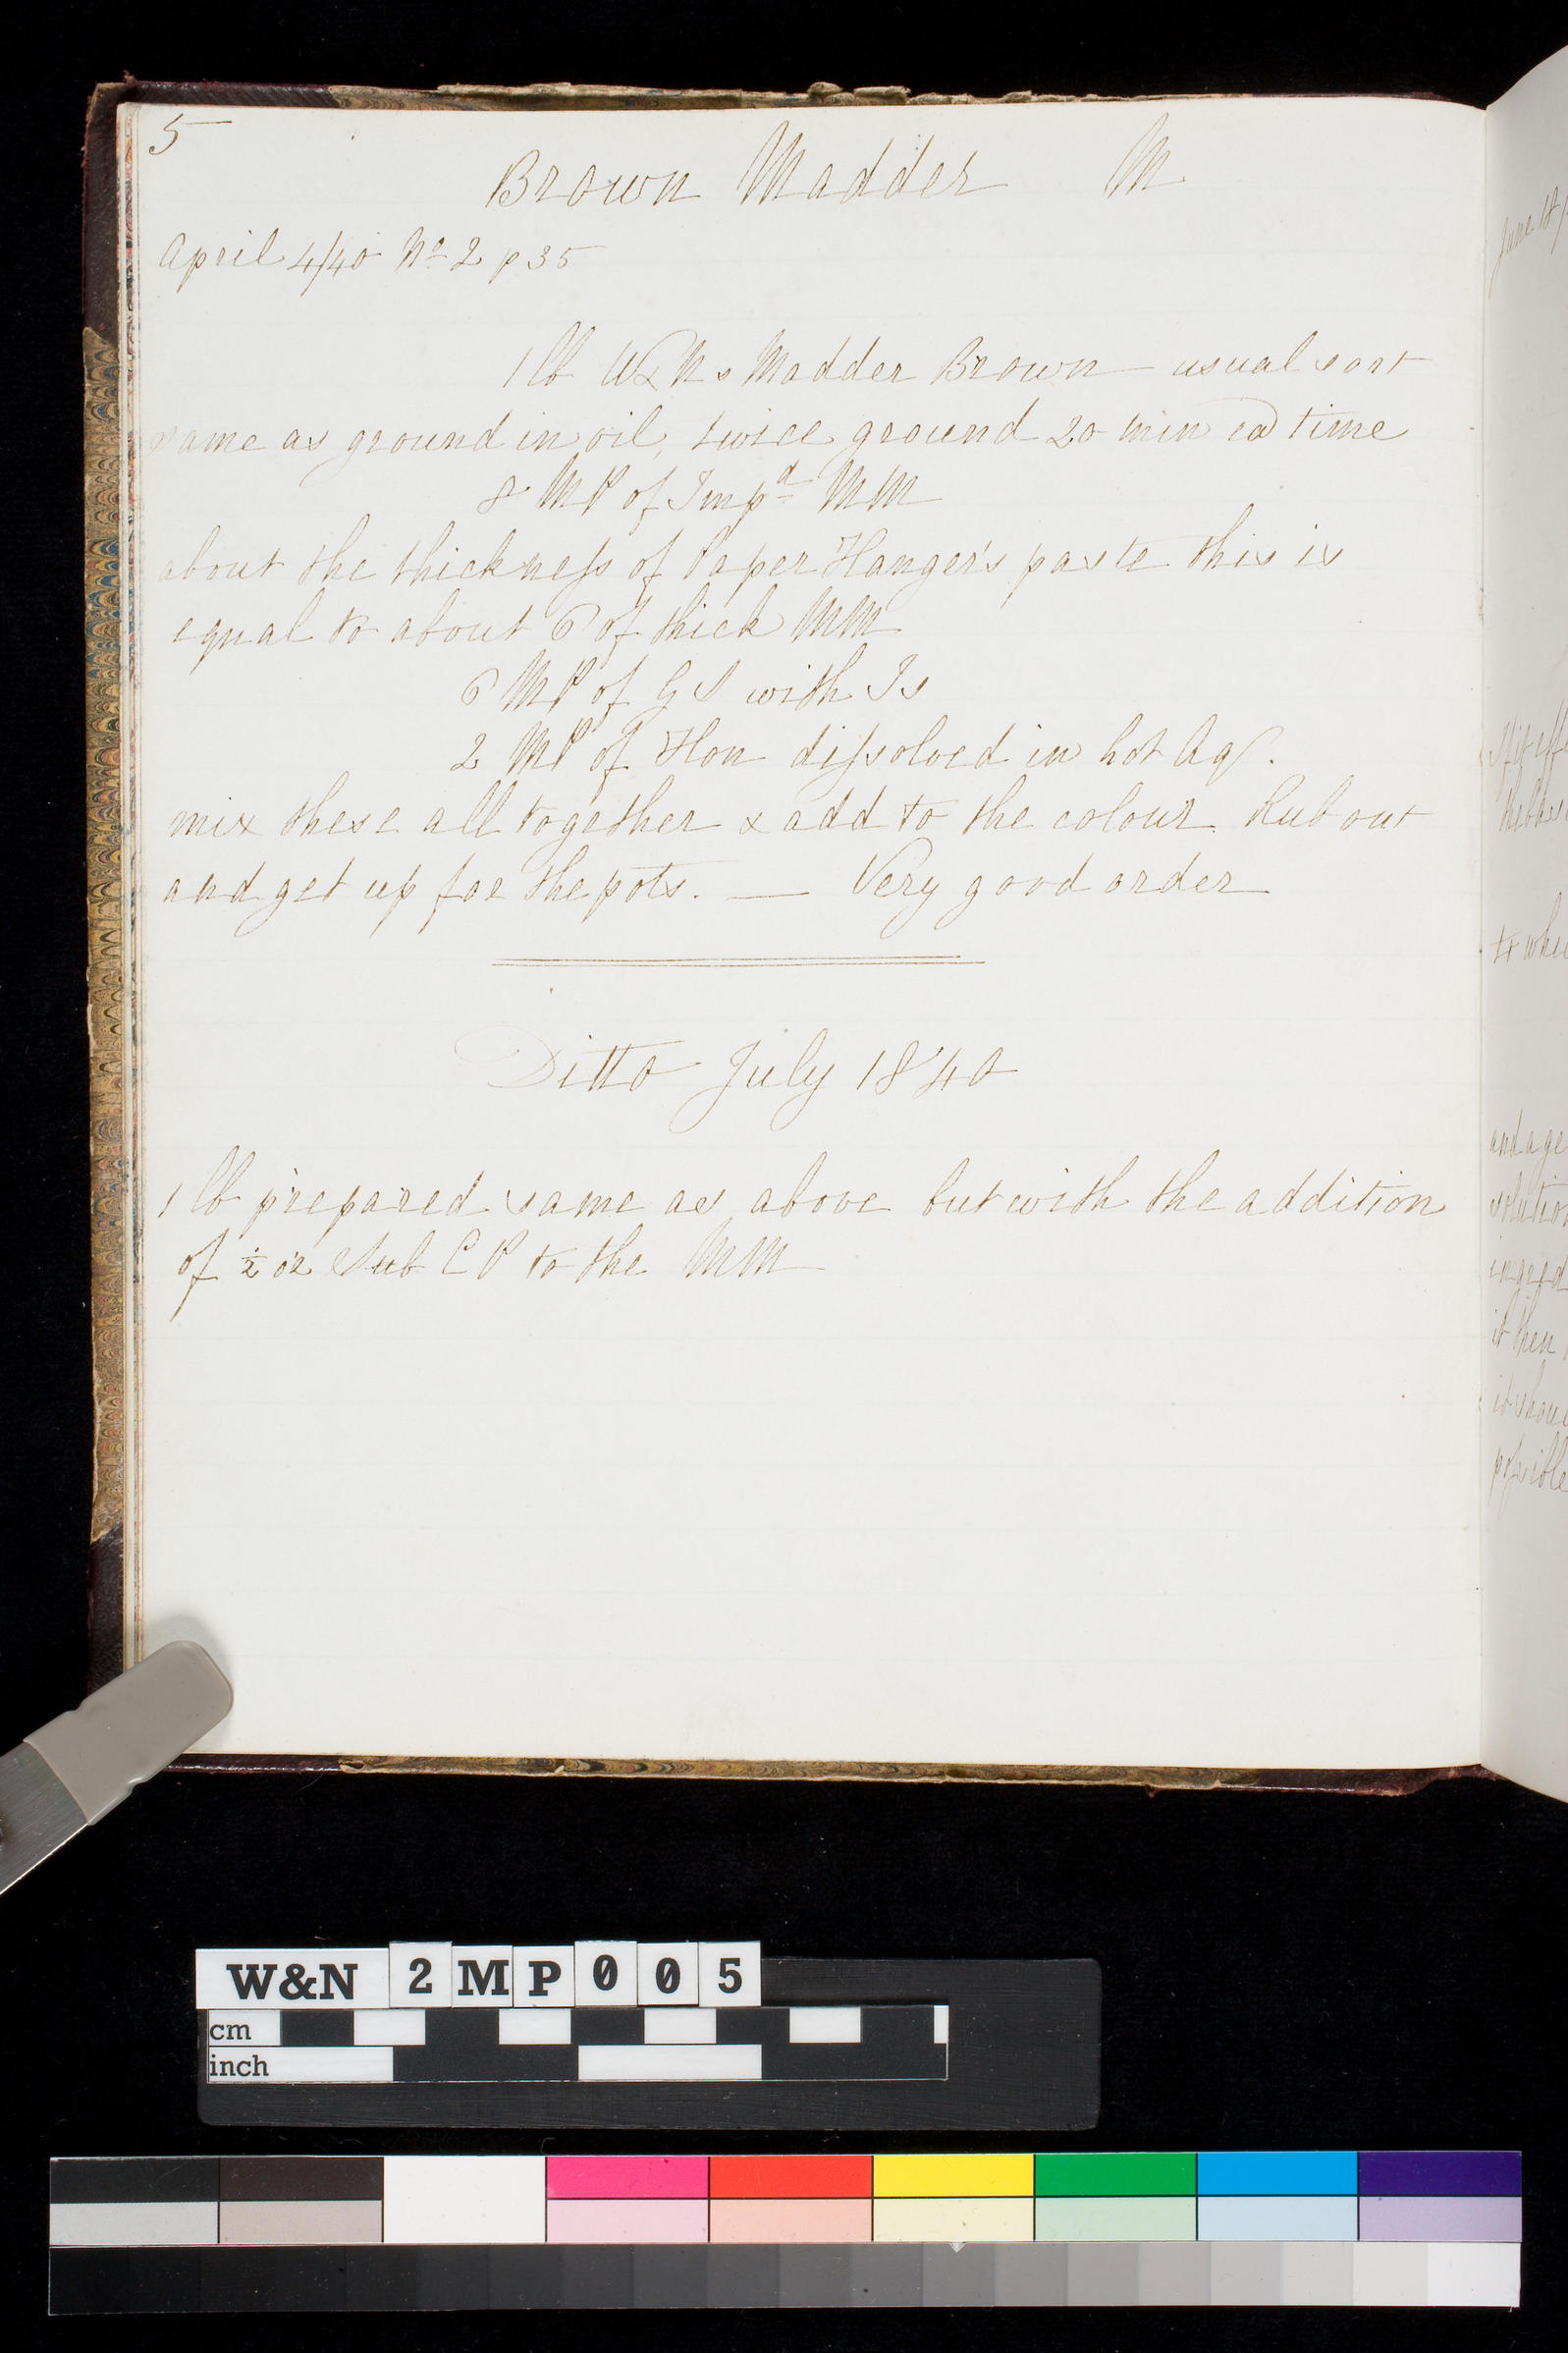 5
Brown Madder M
April 4/40 No 2 p 35
1 lb W & Ns Madder Brown – usual sort
same as ground in oil, twice ground 20 min ea time
8 MP of Impd MM
about the thickness of Paper Hanger's paste this is
equal to about 6 of thick MM
6 MP of GS with Is
2 MP of Hon dissolved in hot Aq.
mix these all together & add to the colour. Rub out
and get up for the pots. — Very good order
Ditto July 1840
1 lb prepared same as above but with the addition
of ½ oz Sub CP to the MM
June 18
to whi
and age
solution
ingred
it then
possible
W&N 2MP005
cm
inch